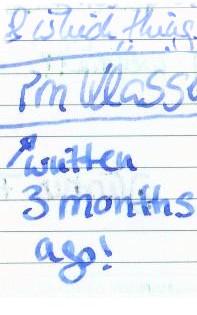 I which thing
I'm Klass
written
3 months
ago!